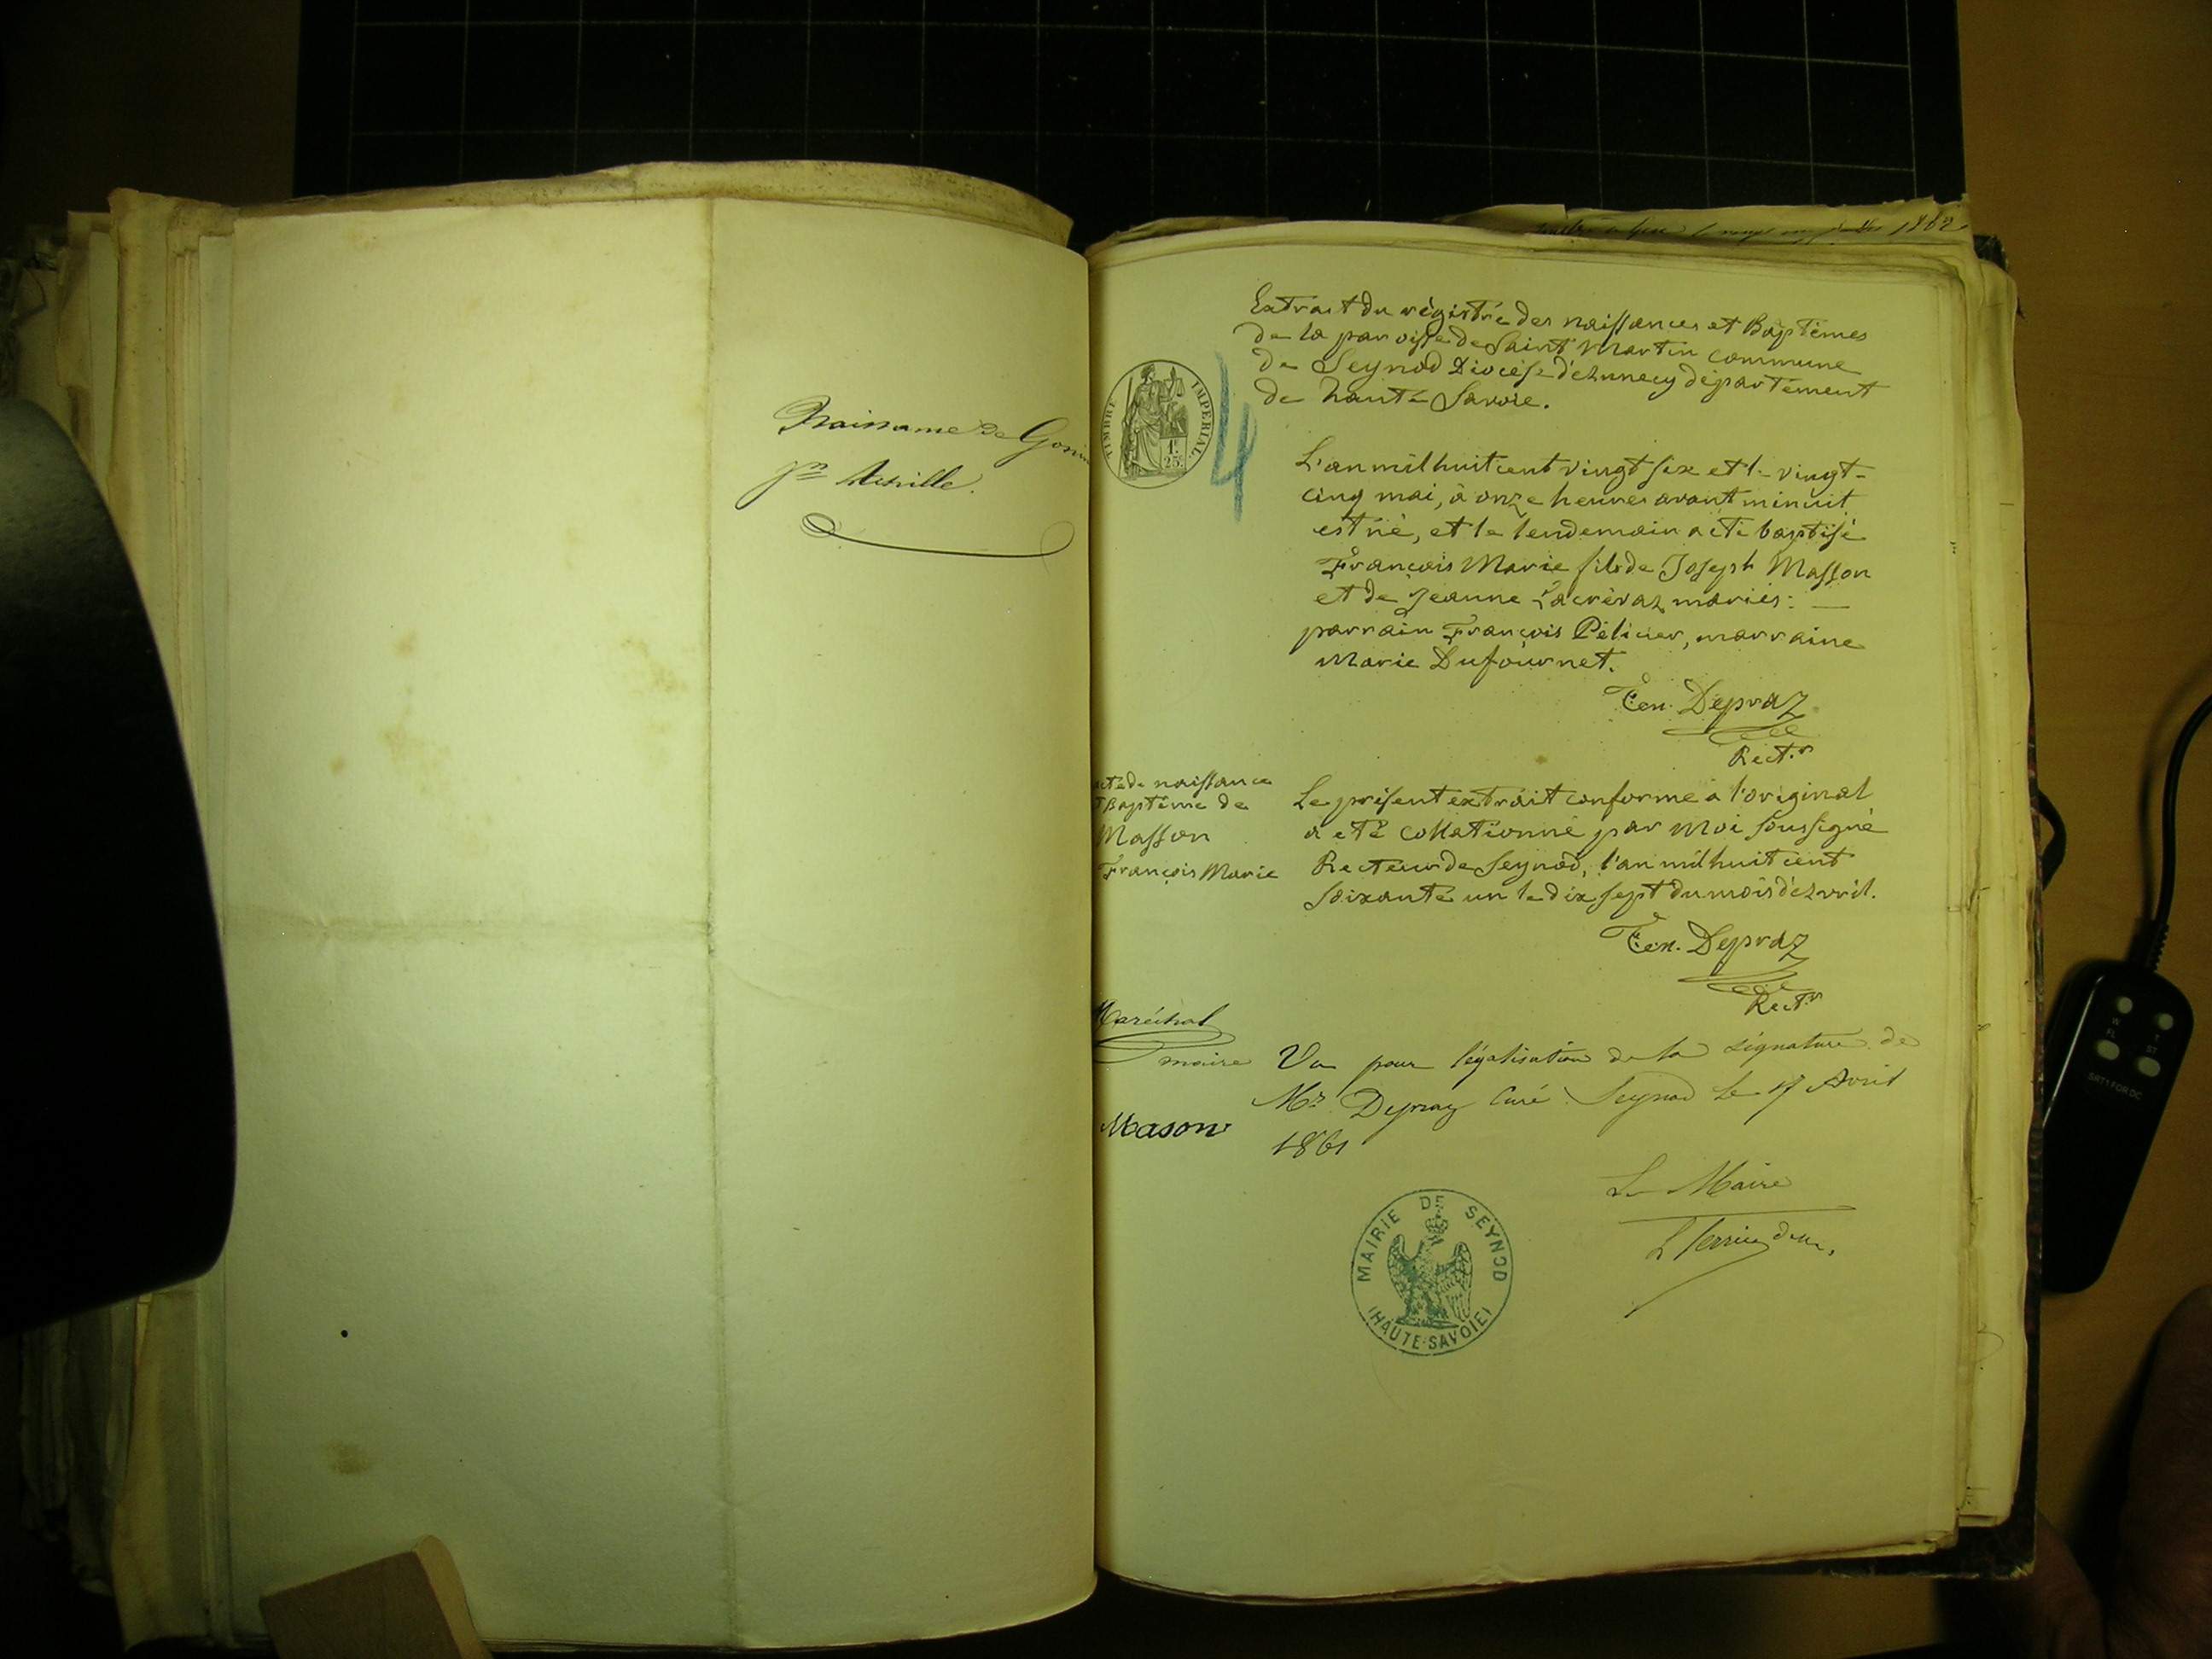 Naissance de Gonin
Jn Achille.
1862
Extrait du régistre des naissances et Baptêmes
de la paroisse de Saint Martin commune
de Seynod Diocèse d'Annecy département
de haute Savoie.
TIMBRE IMPERIAL.
1f.
25c.
4
L'an mil huit cent vingt six et le vingt-
cinq mai, à onze heures avant minuit
est né, et le lendemain a été baptisé
François Marie fils de Joseph Masson
et de Jeanne Lacrévaz mariés: —
parrain François Pélicier, marraine
Marie Dufournet.
Depraz
Rectr
acte de naissance
et Baptême de
Masson
François Marie
Le présent extrait conforme a l'original
a été collationné par moi soussigné
Recteur de Seynod, l'an mil huit cent
soixante un le dix sept du mois d'avril.
Depraz
Rectr
Maréchal
maire
Vu pour légalisation de la signature de
Mr Depraz Curé Seynod le 17 Avril
1861
Mason
Le Maire
MAIRIE DE SEYNOD
(HAUTE-SAVOIE)